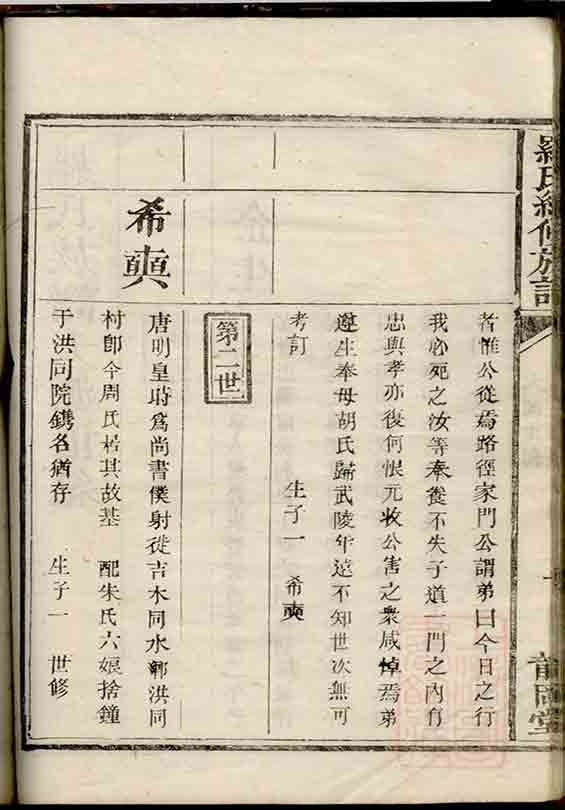 羅氏續修族譜
者惟公從焉路徑家門公謂弟曰今日之行
我必死之汝等奉養不失子道一門之內有
忠與孝亦復何恨元收公害之衆咸悼焉弟
遵生奉母胡氏歸武陵年遠不知世次無可
考訂 生子一 希奭
第二世
希奭
唐明皇時爲尚書僕射從吉木同水鄉洪同
村卽今周氏居其故基 配朱氏六娘捨鐘
于洪同院鐫名猶存 生子一 世修
堂